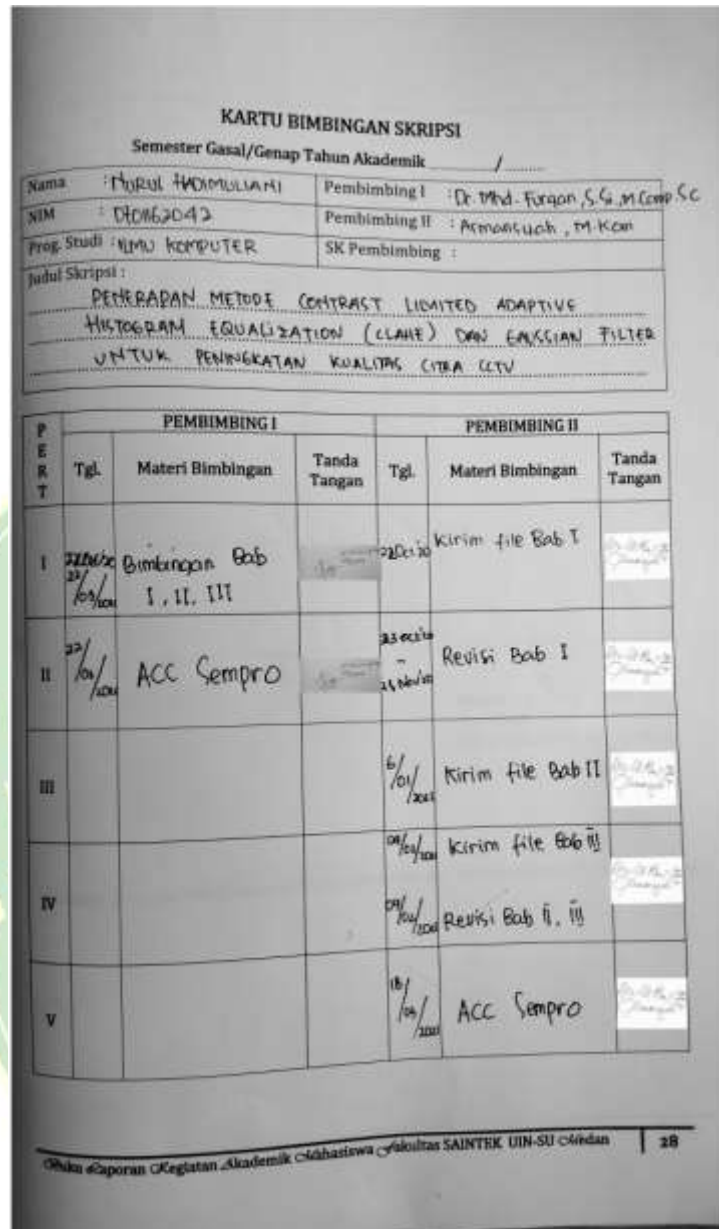 KARTU BIMBINGAN SKRIPSI
Semester Gasal/Genap Tahun Akademik ............ / ........
Nama : NURUL HADIMULIANI Pembimbing I : Dr. Mhd. Furqan, S.Si, M.Comp.Sc
NIM : 0701162042 Pembimbing II : Armansyah, M.Kom
Prog. Studi : ILMU KOMPUTER SK Pembimbing :
Judul Skripsi :
PENERAPAN METODE CONTRAST LIMITED ADAPTIVE
HISTOGRAM EQUALIZATION (CLAHE) DAN GAUSSIAN FILTER
UNTUK PENINGKATAN KUALITAS CITRA CCTV
PERT PEMBIMBING I PEMBIMBING II
Tgl. Materi Bimbingan Tanda Tangan Tgl. Materi Bimbingan Tanda Tangan
I Bimbingan Bab I, II, III 22 Oct'20 Kirim file Bab I
II ACC Sempro Revisi Bab I
III 6/01/ Kirim file Bab II
IV Kirim file Bab III
Revisi Bab II, III
V ACC Sempro
Buku Laporan Kegiatan Akademik Mahasiswa Fakultas SAINTEK UIN-SU Medan 28